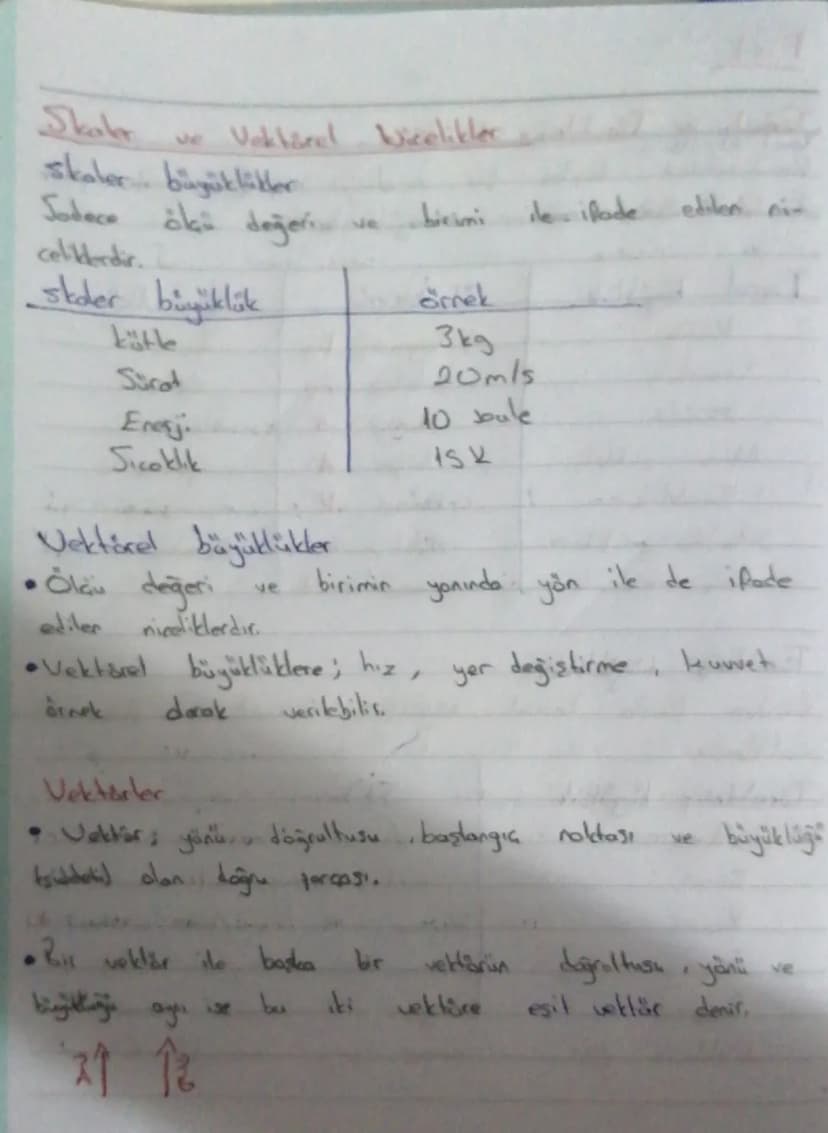 Skaler ve Vektörel Nicelikler
Skaler büyüklükler
Sadece ölçü değeri ve birimi ile ifade edilen ni-
celiklerdir.
Skaler büyüklük örnek
kütle 3kg
Sürat 20m/s
Enerji 10 Joule
Sıcaklık 15 K
Vektörel büyüklükler
• Ölçü değeri ve birimin yanında yön ile de ifade
edilen niceliklerdir.
• Vektörel büyüklüklere; hız, yer değiştirme, kuvvet
örnek olarak verilebilir.
Vektörler
• Vektör; yönü, doğrultusu, başlangıç noktası ve büyüklüğü
(şiddeti) olan doğru parçası.
• Bir vektör ile başka bir vektörün doğrultusu, yönü ve
büyüklüğü aynı ise bu iki vektöre eşit vektör denir.